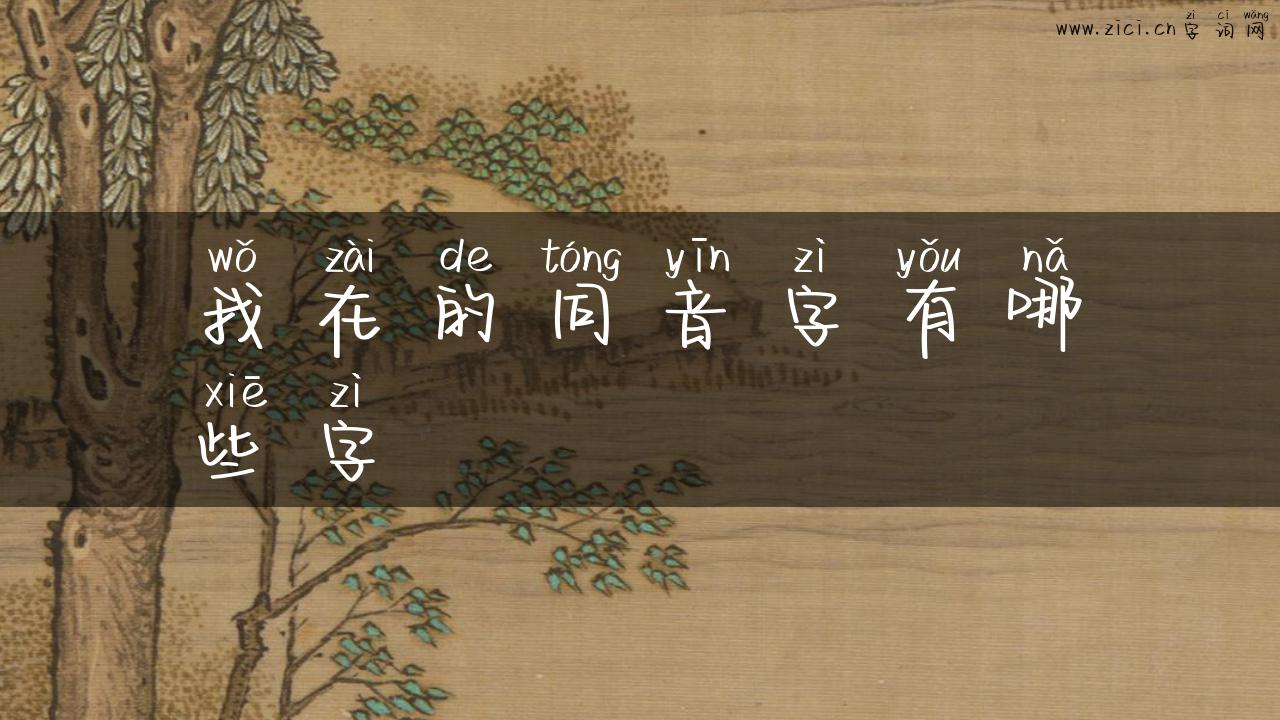 zì cí wǎng
www.zici.cn 字词网
wǒ zài de tóng yīn zì yǒu nǎ
我在的同音字有哪
xiē zì
些字